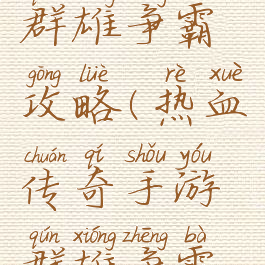 群雄争霸
gōng lüè rè xuè
攻略(热血
chuán qí shǒu yóu
传奇手游
qún xióng zhēng bà
群雄争霸